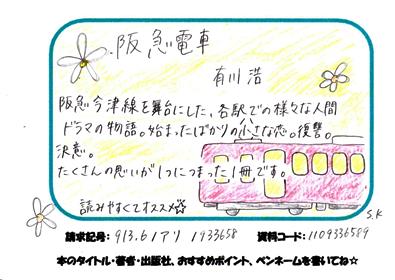 阪急電車
有川 浩
阪急今津線を舞台にした、各駅での様々な人間
ドラマの物語。始まったばかりの小さな恋。復讐。
決意。
たくさんの思いが1つにつまった1冊です。
読みやすくてオススメ☆
S.K
請求記号： 913.6/アリ 1933658 資料コード：1109336589
本のタイトル・著者・出版社、おすすめポイント、ペンネームを書いてね☆